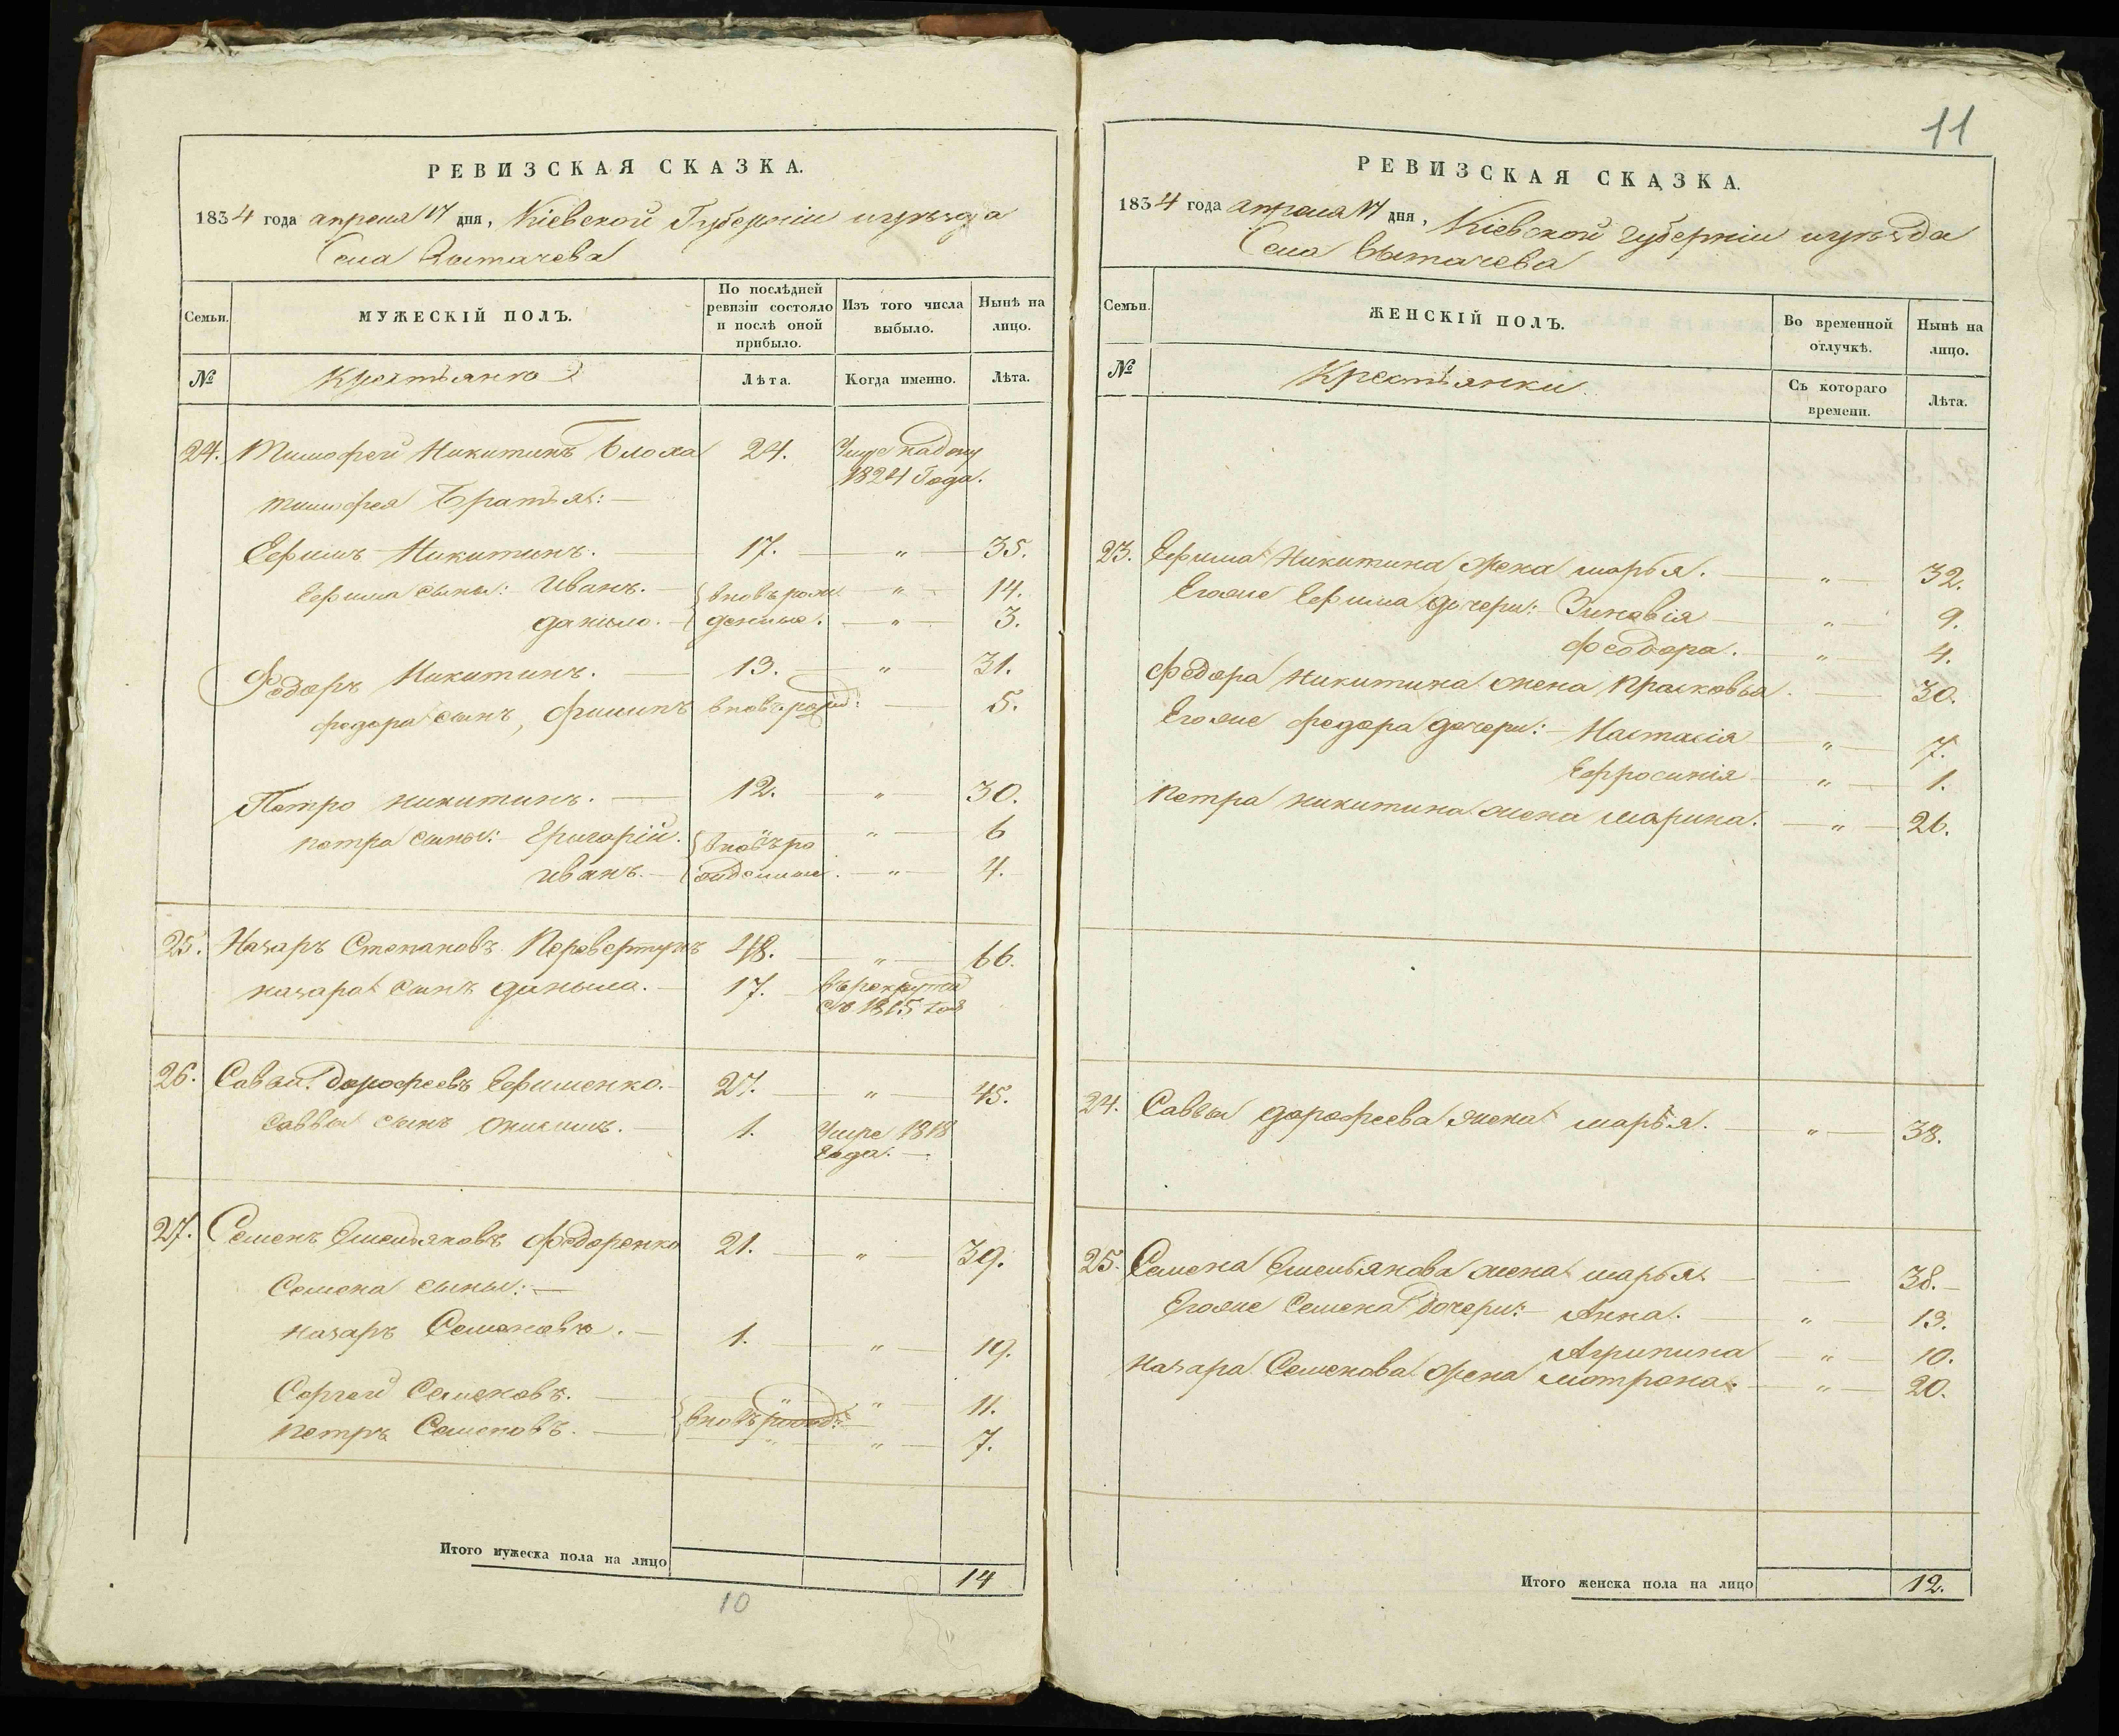 РЕВИЗСКАЯ СКАЗКА.
1834 года апреля 17 дня, Кіевской Губерніи и уѣзда
Села Вытачева
Семьи.
МУЖЕСКІЙ ПОЛЪ.
По послѣдней ревизіи состояло и послѣ оной прибыло.
Изъ того числа выбыло.
Нынѣ на лицо.
№
Лѣта.
Когда именно.
Лѣта.
24. Тимофей Никитинъ Блоха 24.
1824 Года.
тимофея Братья:
Ефимъ Никитинъ. 17. " 35.
Ефима сыны: Иванъ. вновь рож " 14.
данило. денные. " 3.
Федоръ Никитинъ. 13. " 31.
федора сынъ, Филипъ вновь рожд: 5.
Петро никитинъ. 12. " 30.
петра сыны: Григорій. вновь ро " 6
иванъ. жденные. " 4.
25. Назаръ Степановъ Перевертунъ 48. " 66.
назара сынъ даныла. 17. въ рекруты
съ 1815 год
26. Савва дорофеевъ Ефименко. 27. " 45.
саввы сынъ Онисимъ. 1. Умре 1818
Года.
27. Семенъ Омельяновъ Федоренко 21. " 39.
Семена сыны:
назаръ Семеновъ. 1. " 19.
Сергей Семеновъ. " " 11.
вновь рожд:
петръ Семеновъ. " " 7.
Итого мужеска пола на лицо 14
10
11
РЕВИЗСКАЯ СКАЗКА.
1834 года апреля 17 дня, Кіевской губерніи и уѣзда
Села вытачева
Семьи.
ЖЕНСКІЙ ПОЛЪ.
Во временной отлучкѣ.
Нынѣ на лицо.
№
Крестьянки
Съ котораго времени.
Лѣта.
23. Ефима Никитина жена марья. " 32.
Егоже Ефима дочери: Зиновія " 9.
Феодора. " 4.
Федора никитина жена Прасковья. 30.
Егоже федора дочери: Настасія " 7.
Ефросинія " 1.
петра никитина жена марина. " 26.
24. Саввы дорофеева жена марья. " 38.
25. Семена Омельянова жена марья 38.
Егоже Семена дочери: Анна. " 13.
Агрипина " 10.
Назара Семенова жена мотрона. " 20.
Итого женска пола на лицо 12.